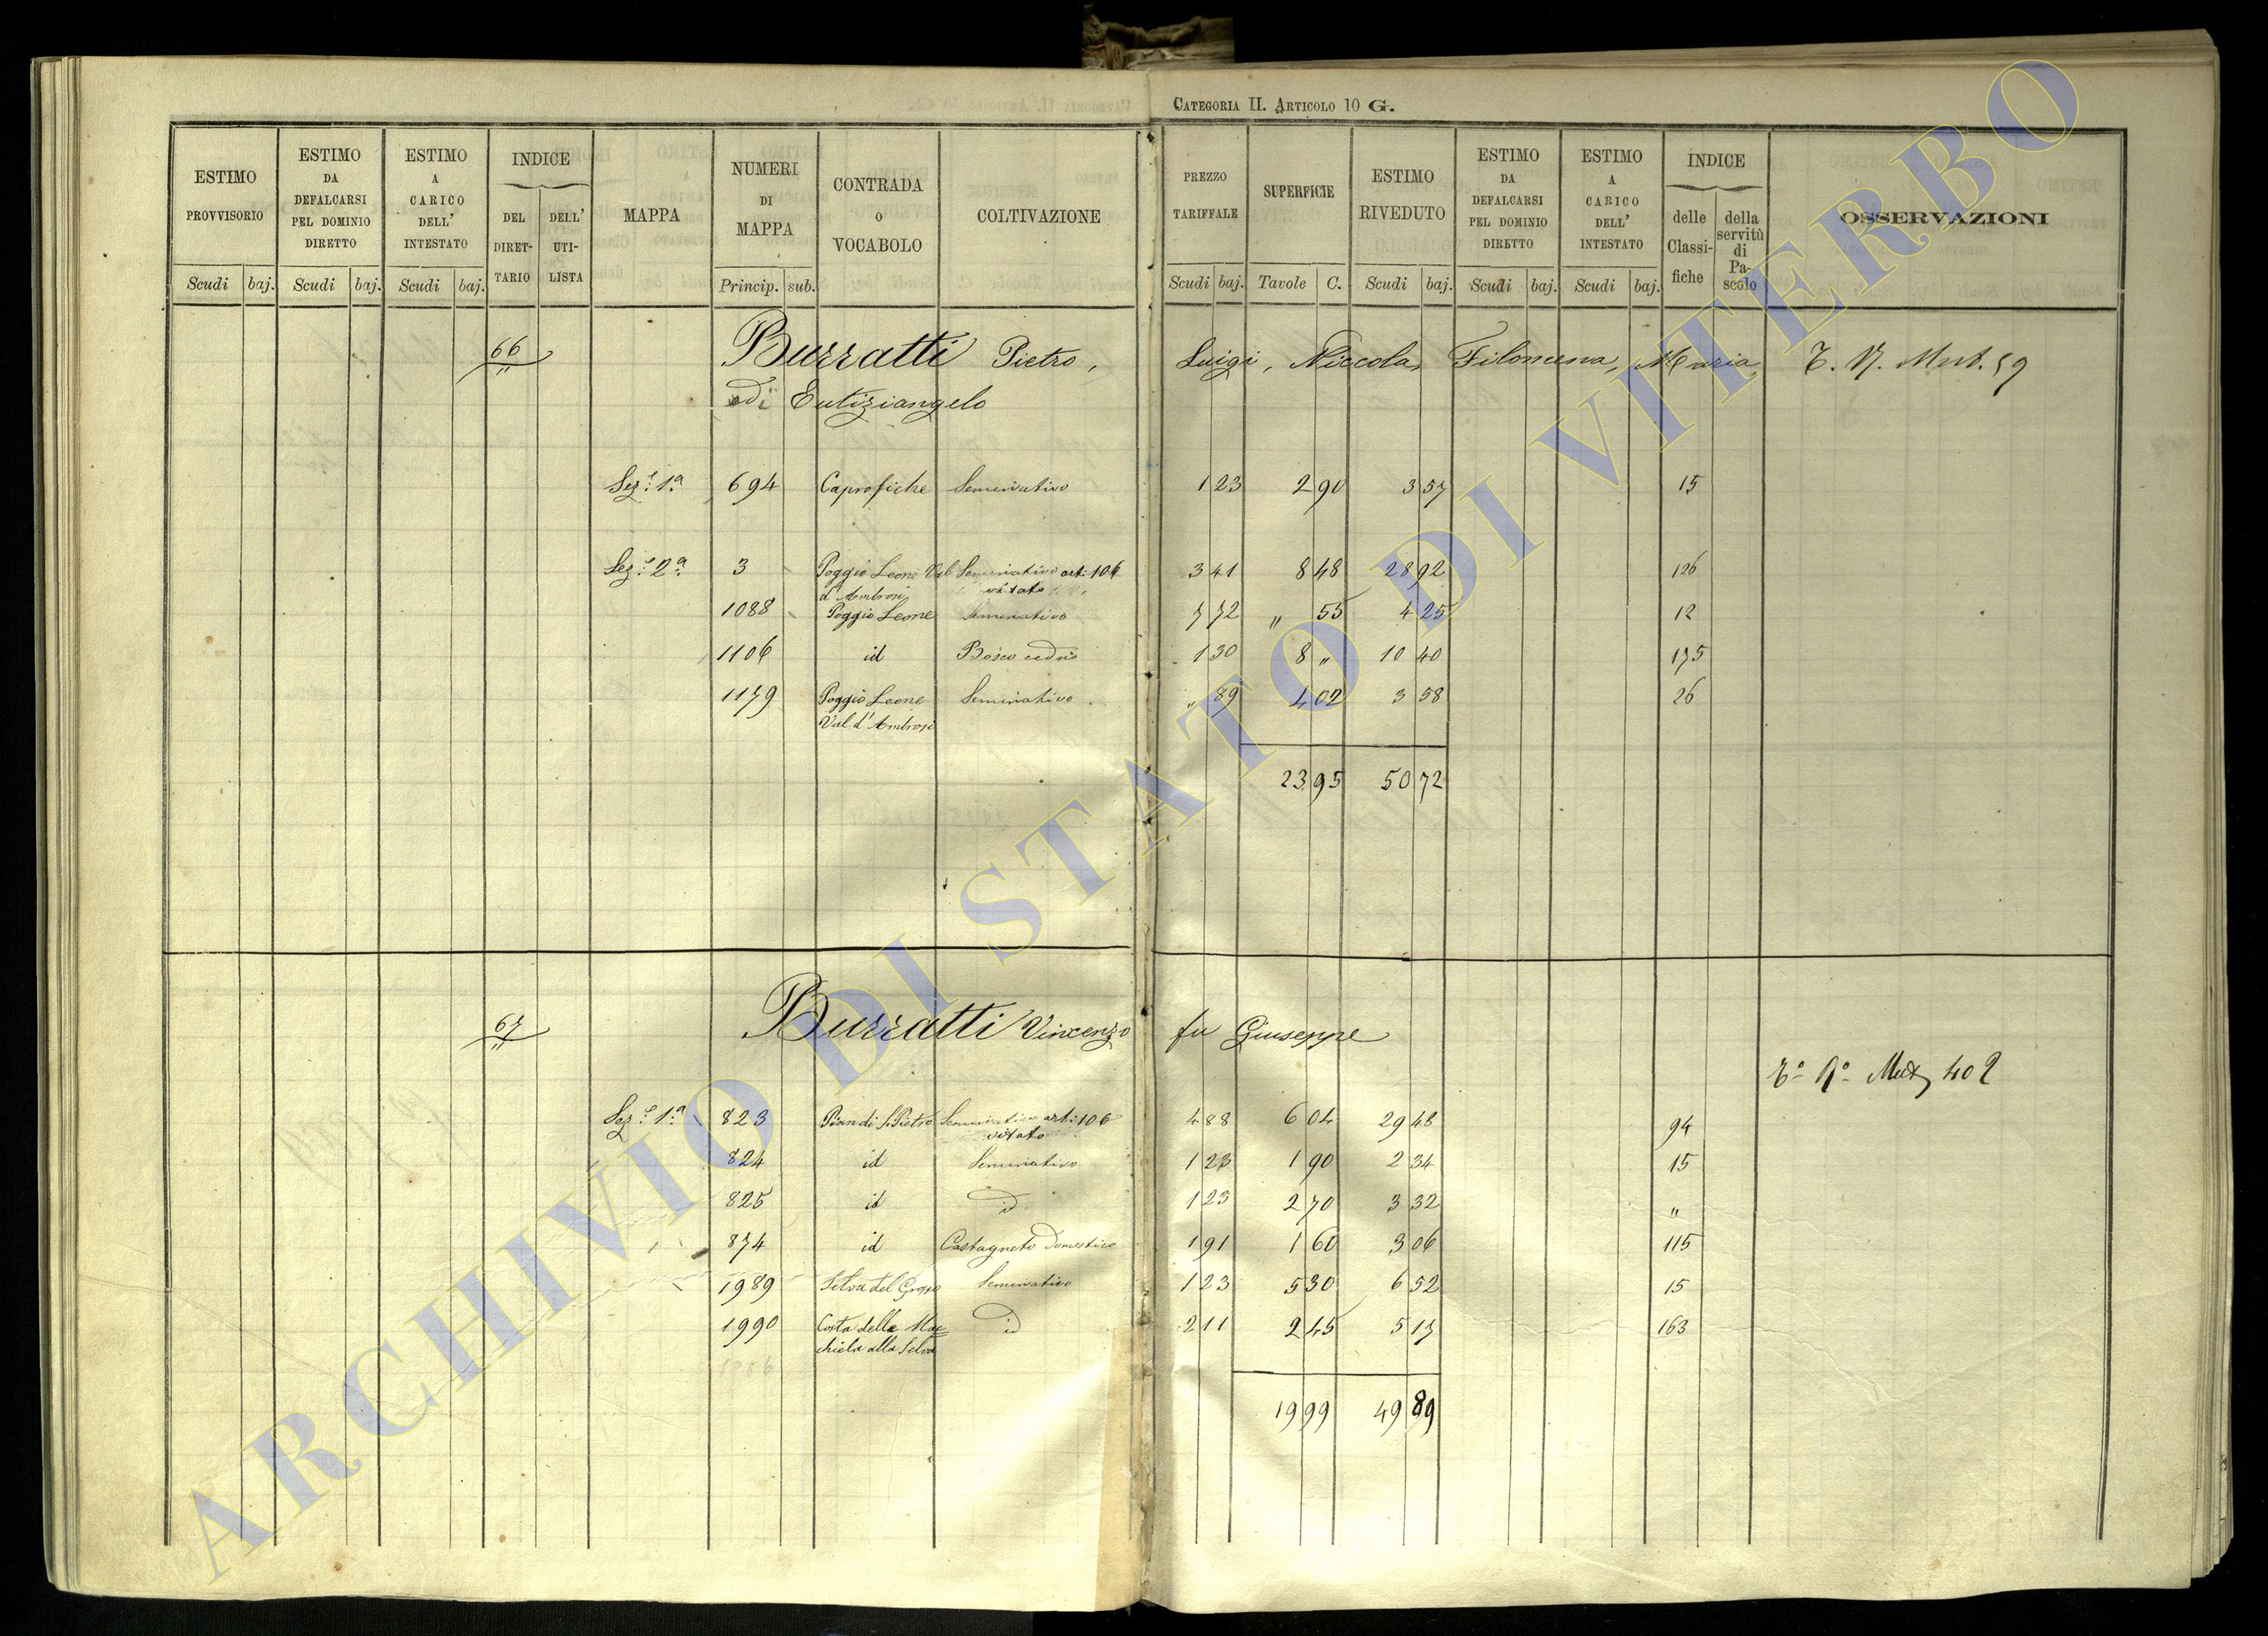 CATEGORIA II. ARTICOLO 10 G.
ESTIMO PROVVISORIO Scudi baj.
ESTIMO DA DEFALCARSI PEL DOMINIO DIRETTO Scudi baj.
ESTIMO A CARICO DELL' INTESTATO Scudi baj.
INDICE DEL DIRET-TARIO DELL' UTI-LISTA
MAPPA
NUMERI DI MAPPA Princip. sub.
CONTRADA O VOCABOLO
COLTIVAZIONE
PREZZO TARIFFALE Scudi baj.
SUPERFICIE Tavole C.
ESTIMO RIVEDUTO Scudi baj.
ESTIMO DA DEFALCARSI PEL DOMINIO DIRETTO Scudi baj.
ESTIMO A CARICO DELL' INTESTATO Scudi baj.
INDICE delle Classi-fiche della servitù di Pa-scolo
OSSERVAZIONI
66 Burratti Pietro, Luigi, Niccola, Filomena, Maria,
di Eutiziangelo
Sez.e 1.a 694 Caprofiche Seminativo 1 23 2 90 3 57 15
Sez.e 2.a 3 Poggio Leone Val Seminativo art: 106 3 41 8 48 28 92 126
d'Ambrosi vitato
1088 Poggio Leone Seminativo 7 72 " 55 4 25 12
1106 id Bosco ceduo 1 30 8 " 10 40 175
1179 Poggio Leone Seminativo " 89 4 02 3 58 26
Val d'Ambrosi
23 95 50 72
67 Burratti Vincenzo fu Giuseppe
Sez.e 1.a 823 Pian di S. Pietro Seminativo art: 106 4 88 6 04 29 48 94
vitato
824 id Seminativo 1 23 1 90 2 34 15
825 id id 1 23 2 70 3 32 "
874 id Castagneto Domestico 1 91 1 60 3 06 115
1989 Selva del Grosso Seminativo 1 23 5 30 6 52 15
1990 Costa della Mac= id 2 11 2 45 5 17 163
chiola alla Selva
19 99 49 89
ARCHIVIO DI STATO DI VITERBO